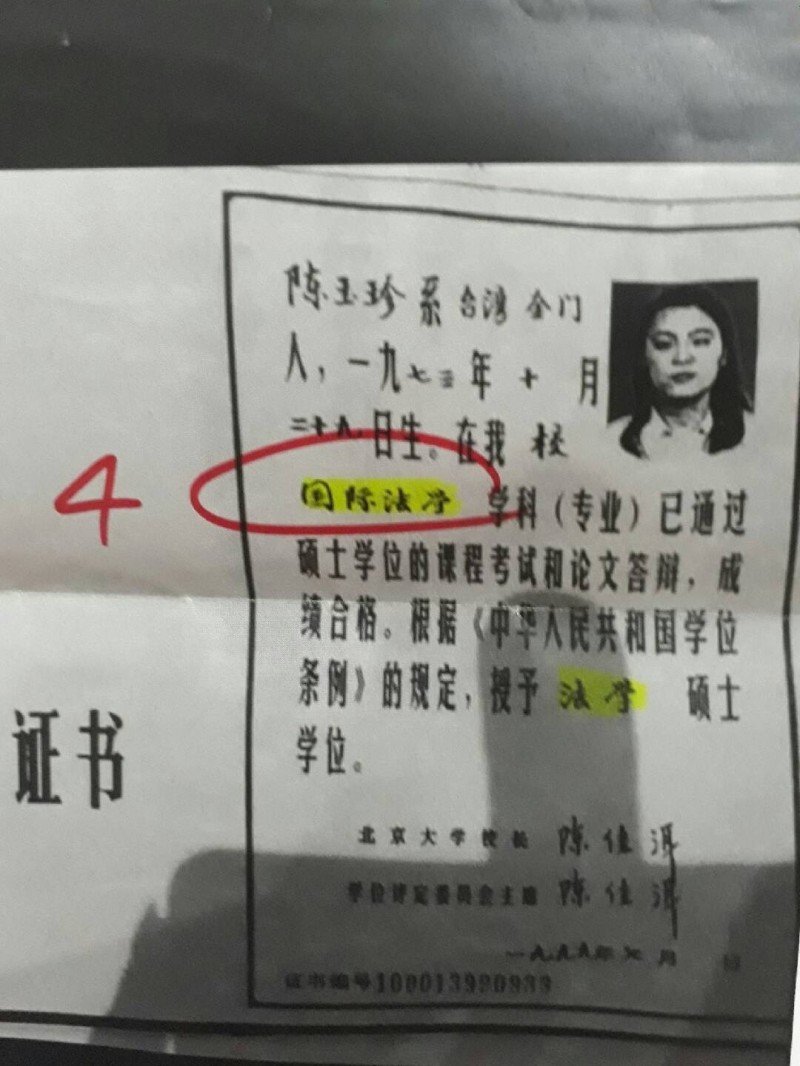 4
陈玉珍系台湾金门
人，一九七三年十月
二十八日生。在我校
国际法学学科（专业）已通过
硕士学位的课程考试和论文答辩，成
绩合格。根据《中华人民共和国学位
条例》的规定，授予法学硕士
学位。
证书
北京大学校长 陈佳洱
学位评定委员会主席 陈佳洱
一九九九年七月 日
证书编号